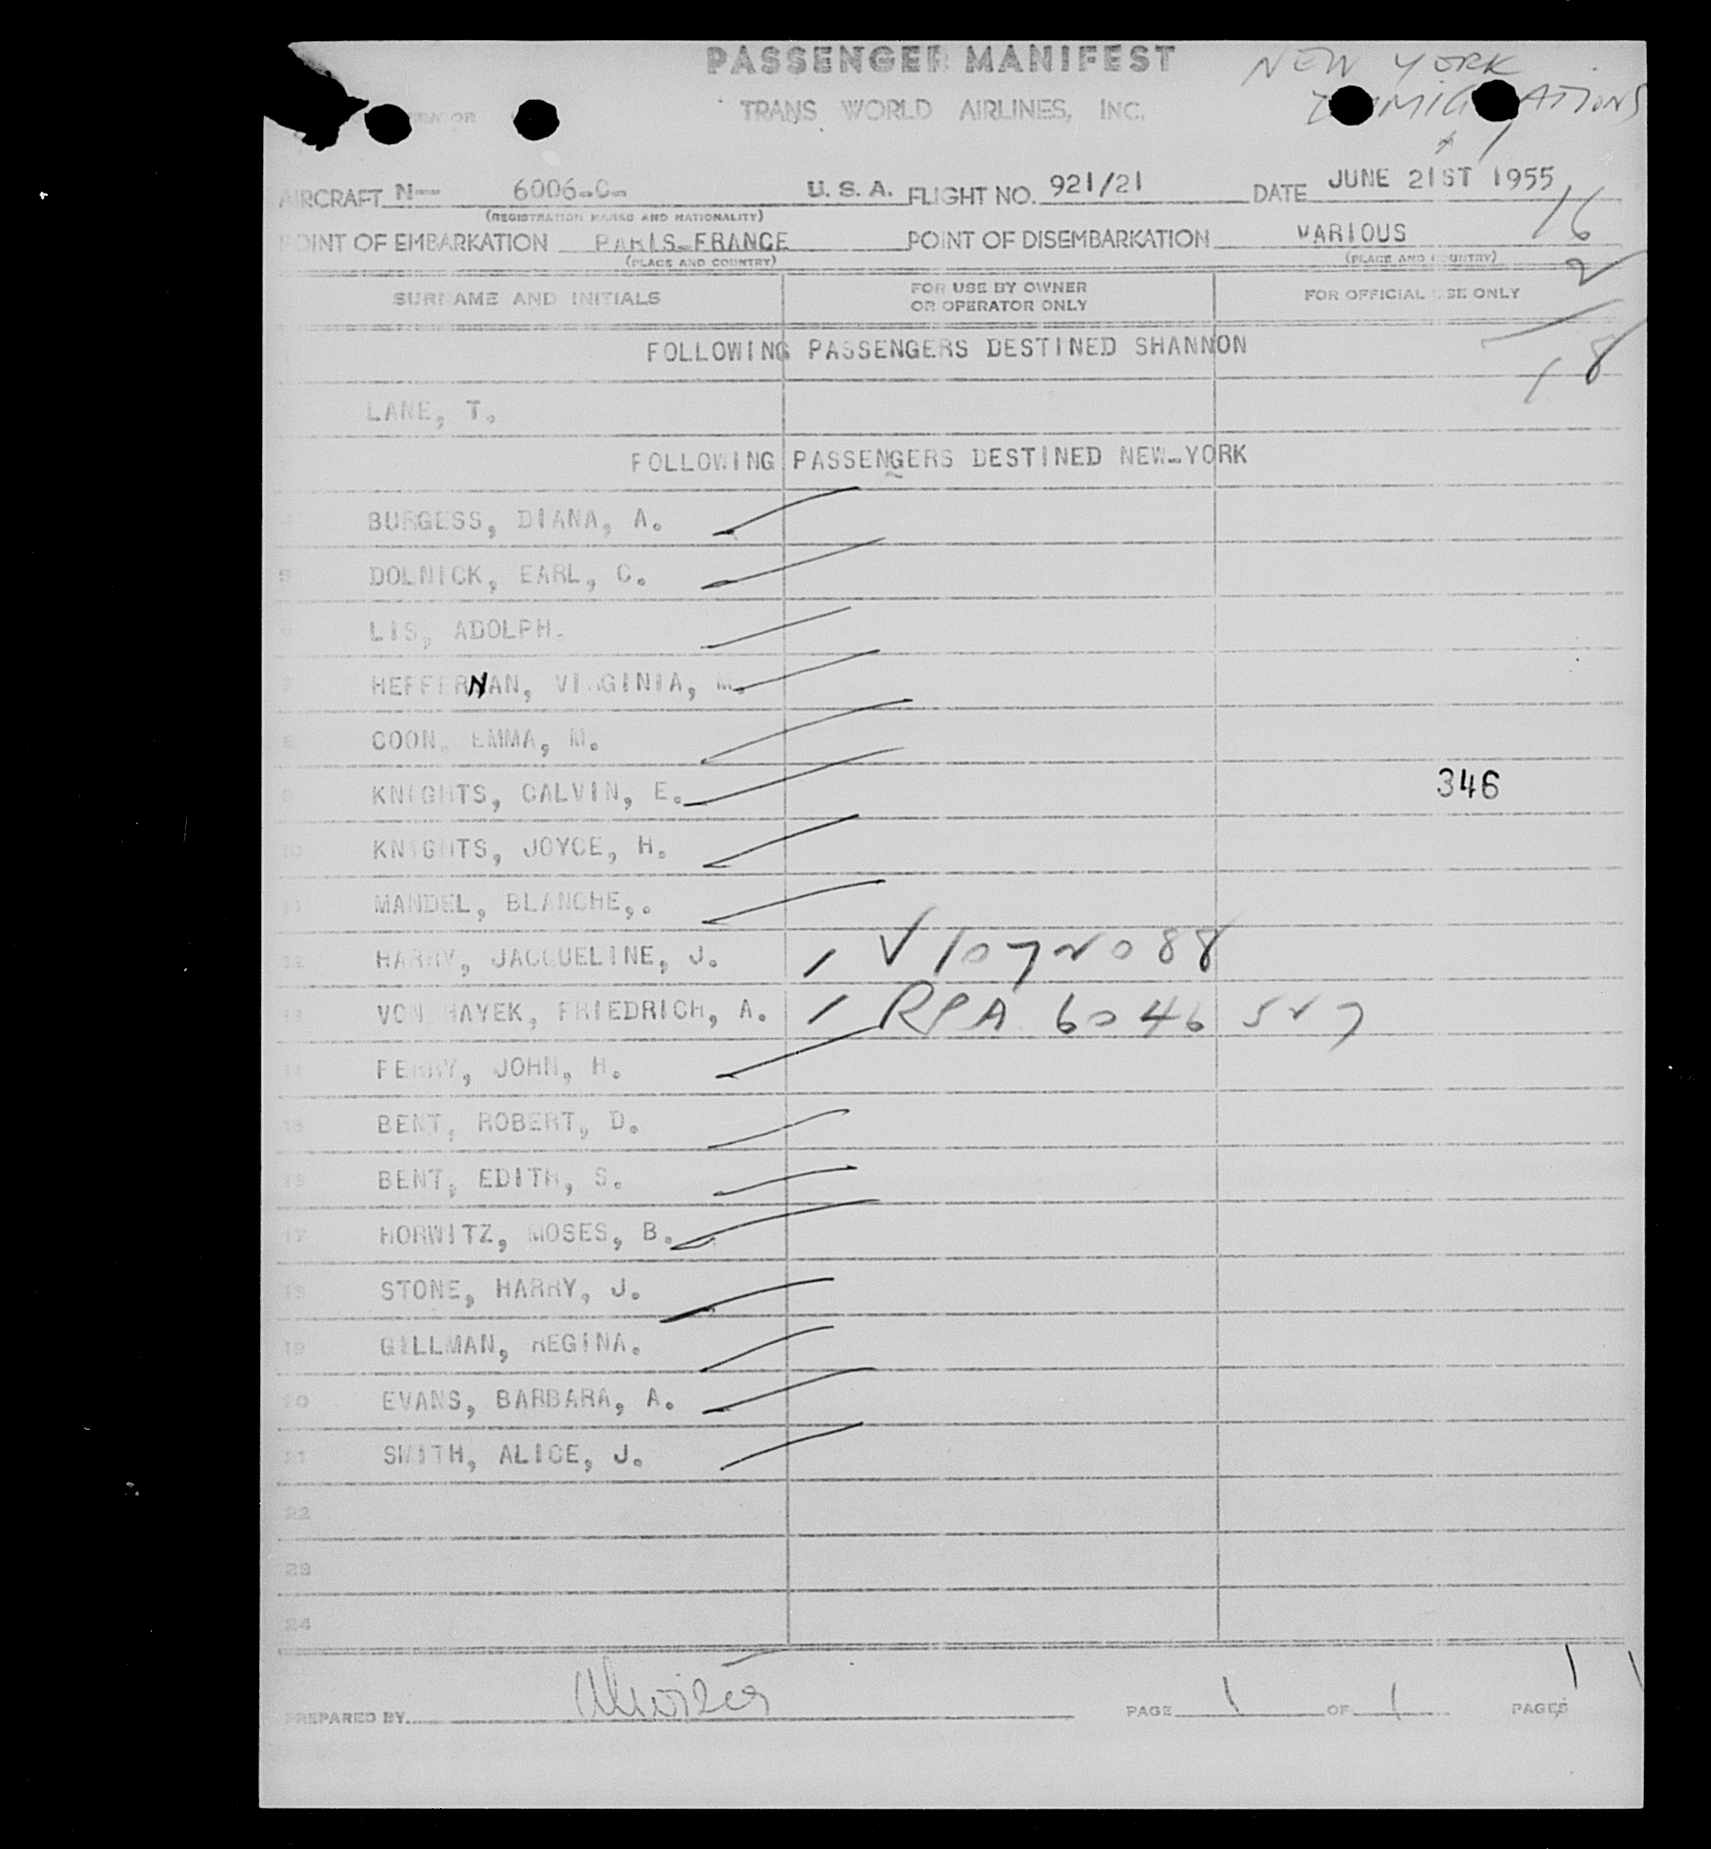 PASSENGER MANIFEST
NEW YORK
TRANS WORLD AIRLINES, INC.
AIRCRAFT N-- 6006-C- U. S. A. FLIGHT NO. 921/21 DATE JUNE 21ST 1955
(REGISTRATION MARKS AND NATIONALITY)
16
POINT OF EMBARKATION PARIS-FRANCE POINT OF DISEMBARKATION VARIOUS
(PLACE AND COUNTRY) (PLACE AND COUNTRY)
2
SURNAME AND INITIALS FOR USE BY OWNER OR OPERATOR ONLY FOR OFFICIAL USE ONLY
FOLLOWING PASSENGERS DESTINED SHANNON
18
LANE, T.
FOLLOWING PASSENGERS DESTINED NEW-YORK
BURGESS, DIANA, A.
5 DOLNICK, EARL, C.
6 LIS, ADOLPH.
7 HEFFERNAN, VIRGINIA, M.
8 COON, EMMA, M.
9 KNIGHTS, CALVIN, E. 346
10 KNIGHTS, JOYCE, H.
11 MANDEL, BLANCHE,.
12 HARRY, JACQUELINE, J. / V 1072088
13 VON HAYEK, FRIEDRICH, A. / RPA 6046527
14 FERRY, JOHN, H.
15 BENT, ROBERT, D.
16 BENT, EDITH, S.
17 HORWITZ, MOSES, B.
18 STONE, HARRY, J.
19 GILLMAN, REGINA.
20 EVANS, BARBARA, A.
21 SMITH, ALICE, J.
22
23
24
PREPARED BY PAGE 1 OF 1 PAGES